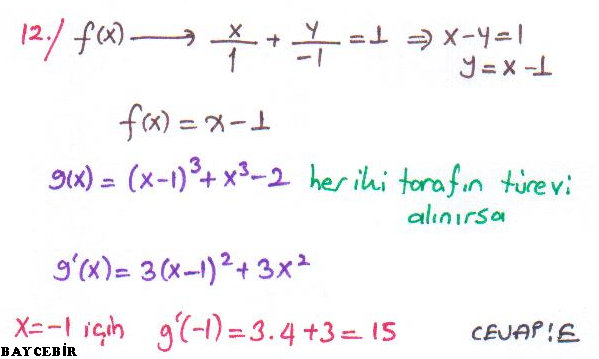 12./ f(x) ⟶ x/1 + y/-1 = 1 ⇒ x-y=1
y = x-1
f(x) = x-1
g(x) = (x-1)³ + x³-2 her iki tarafın türevi
alınırsa
g'(x) = 3(x-1)² + 3x²
x=-1 için g'(-1) = 3.4+3 = 15 CEVAP: E
BAYCEBİR